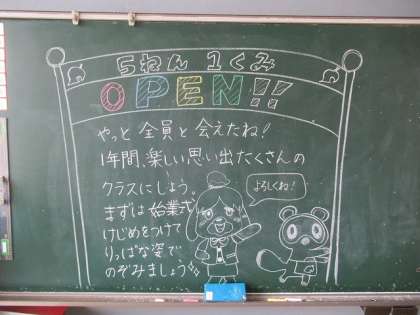 5ねん 1くみ
OPEN!!
やっと 全員と 会えたね!
1年間、楽しい思い出たくさんの
クラスにしよう。
まずは 始業式
けじめをつけて
りっぱな姿で
のぞみましょう!!
よろしくね!